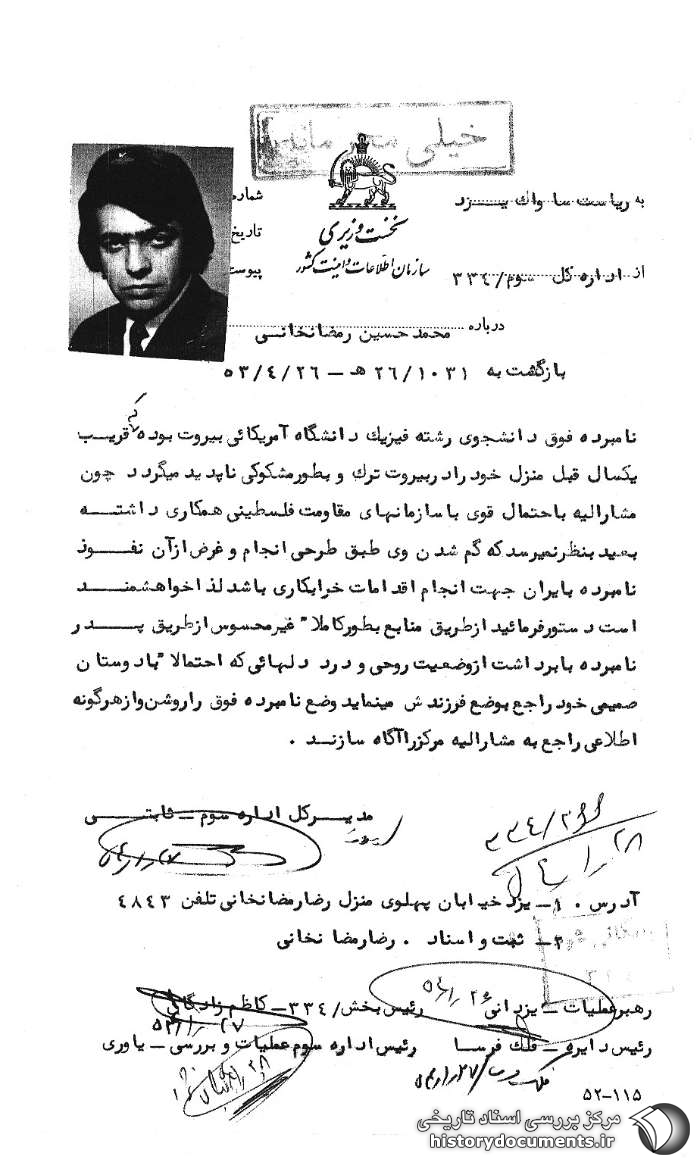 خیلی محرمانه
به ریاست ساواک یـــزد
شماره
نخست وزیری
تاریخ
سازمان اطلاعات و امنیت کشور
از اداره کل سوم/۳۳۴
پیوست
درباره محمد حسین رمضانخانـی
بازگشت به ۲۶/۱۰۳۱ هـ – ۵۳/۴/۲۶
نامبرده فوق دانشجوی رشته فیزیک دانشگاه آمریکائی بیروت بوده که قریب
یکسال قبل منزل خود را در بیروت ترک و بطور مشکوکی ناپدید میگردد چون
مشارالیه باحتمال قوی با سازمانهای مقاومت فلسطینی همکاری داشتـــه
بعید بنظر نمیرسد که گم شدن وی طبق طرحی انجام و غرض از آن نفـــوذ
نامبرده بایران جهت انجام اقدامات خرابکاری باشد لذا خواهشمنـــد
است دستور فرمائید از طریق منابع بطور کاملا" غیرمحسوس از طریق پـــدر
نامبرده با برداشت از وضعیت روحی و درد دلهائی که احتمالا" با دوستان
صمیمی خود راجع بوضع فرزندش مینماید وضع نامبرده فوق را روشن و از هرگونه
اطلاعی راجع به مشارالیه مرکز را آگاه سازنـد .
مدیـــرکل اداره سوم – ثابتـــی
۳۳۴/۲۶۶
آدرس . ۱– یزد خیابان پهلوی منزل رضا رمضانخانی تلفن ۴۸۴۳
۲– ثبت و اسناد . رضا رمضانخانی
رهبر عملیات – یزدانی
رئیس بخش/۳۳۴ – کاظم زادگانی
رئیس دایره – فلک فرسا
رئیس اداره سوم عملیات و بررسی – یاوری
۵۲–۱۱۵
مرکز بررسی اسناد تاریخی
historydocuments.ir